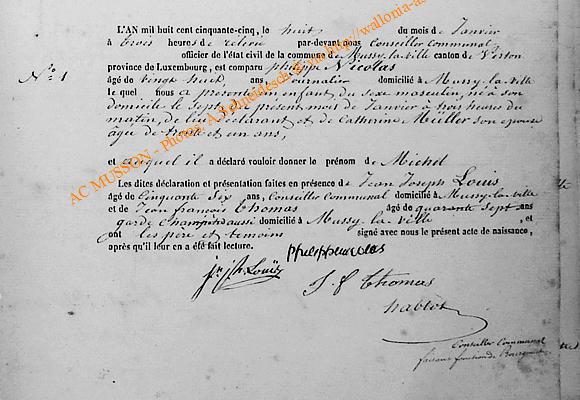 L'AN mil huit cent cinquante-cinq, le huit du mois de Janvier
à trois heures de relevée par-devant nous Conseiller Communal
officier de l'état civil de la commune de Mussy-la-ville canton de Virton
province de Luxembourg, est comparu philippe Nicolas
N° 1
âgé de vingt neuf ans Journalier domicilié à Mussy-la-ville
le quel nous a présenté un enfant du sexe masculin, né à son
domicile le Sept du présent mois de Janvier à trois heures du
matin, de lui déclarant et de Catherine Müller son épouse
âgée de trente et un ans,
et auquel il a déclaré vouloir donner le prénom de Michel
Les dites déclaration et présentation faites en présence de Jean Joseph Louis
âgé de Cinquante Six ans, Conseiller Communal domicilié à Mussy-la-ville
et de Jean françois Thomas âgé de quarante Sept ans
garde Champêtre aussi domicilié à Mussy-la-ville, et
ont les père et temoins signé avec nous le présent acte de naissance,
après qu'il leur en a été fait lecture.
Philippe nicolas
Jn Jh Louis
J. f Thomas
Conseiller Communal
AC MUSSON - Photos A.Schneidesch © http://wallonia-as